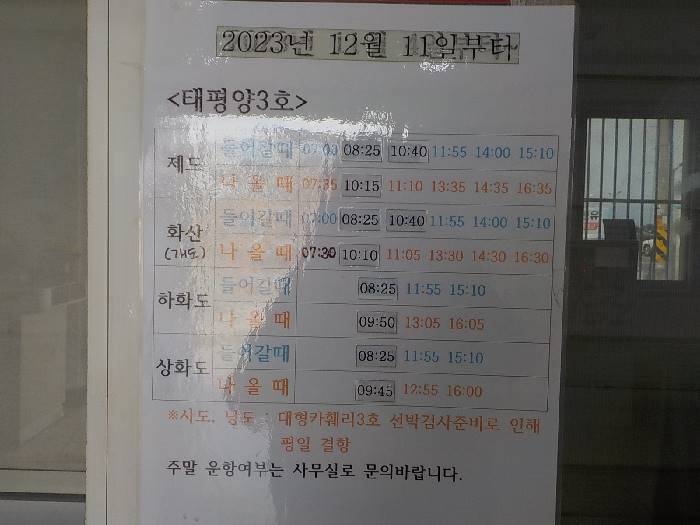 2023년 12월 11일부터
<태평양3호>
제도 들어갈때 07:00 08:25 10:40 11:55 14:00 15:10
나 올 때 07:35 10:15 11:10 13:35 14:35 16:35
화산 (개도) 들어갈때 07:00 08:25 10:40 11:55 14:00 15:10
나 올 때 07:30 10:10 11:05 13:30 14:30 16:30
하화도 들어갈때 08:25 11:55 15:10
나 올 때 09:50 13:05 16:05
상화도 들어갈때 08:25 11:55 15:10
나 올 때 09:45 12:55 16:00
※시도. 낭도 : 대형카훼리3호 선박검사준비로 인해
평일 결항
주말 운항여부는 사무실로 문의바랍니다.